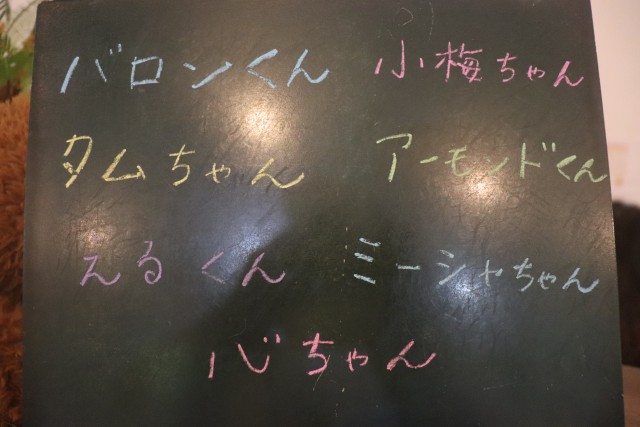 バロンくん 小梅ちゃん
タムちゃん アーモンドくん
えるくん ミーシャちゃん
心ちゃん